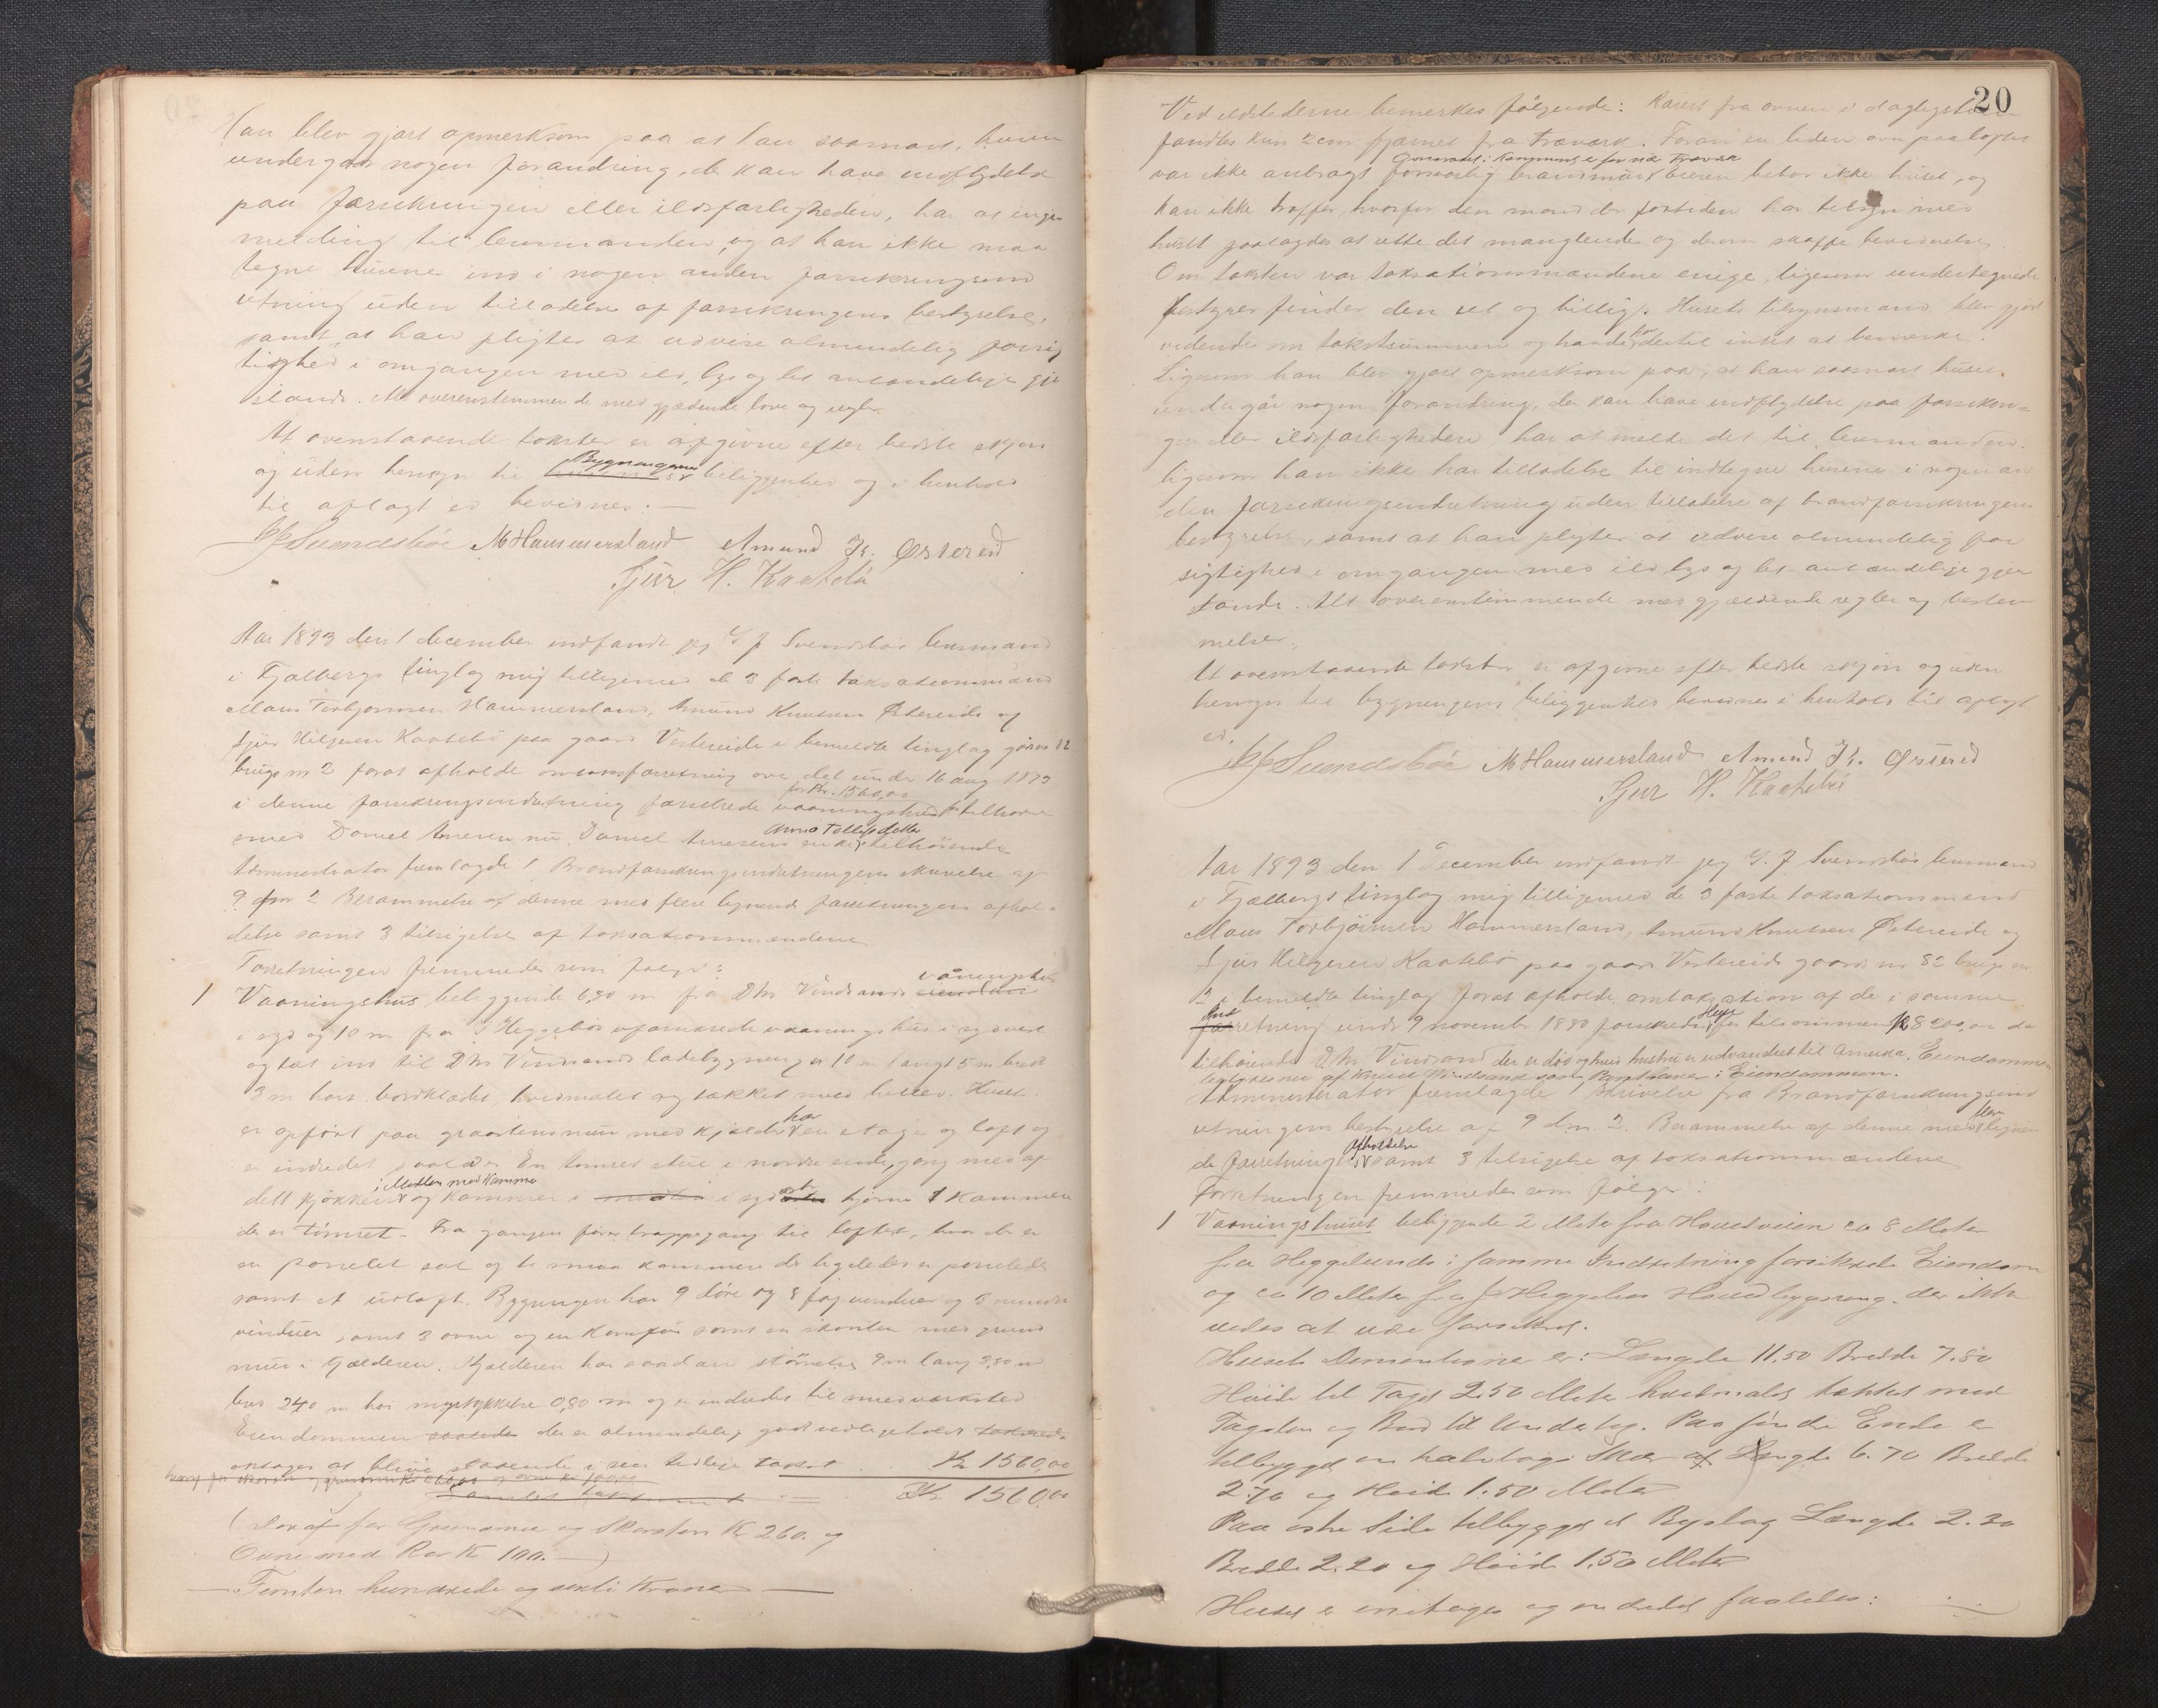 Han blev gjort opmerksom paa at han saasnart husene
undergaar nogen forandring, de kan have indflydelse
paa forsikringen eller ildsfarligheden, har at inge
melding til lensmanden, og at han ikke maa
tegne husene ind i nogen anden forsikringsind
retning uden tilladelse af forsikringens bestyrelse,
samt at han pligter at udvise almindelig forsig
tighed i omgangen med ild, lys og let antændelige gjen
stande. Alt overensstemmende med gjældende love og regler.
At ovenstaaende takster er afgivne efter bedste skjøn
og uden hensyn til Bygningens beliggenhed og i henhold
til aflagt ed bevidnes: —
G J Svendsbøe M Hammersland Amund K. Østereid
Sjur H. Kaatebø
Aar 1893 den 1 december indfandt jeg G J Svendsbøe lensmand
i Fjælbergs tinglag mig tilligemed de 3 faste taksationsmænd
Maus Torbjørnsen Hammersland, Amund Knutsen Østereide og
Sjur Helgesen Kaatebø paa gaard Vestereide i bemeldte tinglag gaards nr 82
brugs nr 2 forat afholde omtaxtforretning over det under 16 aug 1873
for Kr. 1560,00
i denne forsikringsindretning forsikrede vaaningshus tilhøre
Arne Tollefsdatter
ende Daniel Arnesen nu Daniel Arnesens enke tilhørende
Administrator fremlagde 1 Brandforsikringsindretningens skrivelse af
9 dm 2 Berammelse af denne med flere lignende forsikringers afhol-
delse samt 3 tilsigelse af taksationsmændene
Forretningen fremmedes som følger:
1 Vaaningshus beliggende 6,90 m fra D M Vindsands vaaningshus
i syd og 10 m fra J Heggebøs uforsikrede vaaningshus i sydvest
og tæt ind til D M Vindsands ladebygning er 11 m langt 5 m bredt
3 m høit bordklædet, hvidmalet og tækket med heller. Huset
er opført paa graastensmur med kjælder har en etage og loft og
er indredet saaledes En tømret stue i nordre ende, gang med af
i Midten med Kammer
delt kjøkken og kammer i syd hjørne 1 kammer
der er tømret. Fra gangen fører trappegang til loftet, hvor der er
en panelet sal og to smaa kammere der ligeledes er panelede
samt et udloft. Bygningen har 9 døre og 8 fag vinduer og 3 mindre
vinduer, samt 3 ovne og en komfur samt en skorsten med grund
mur i kjælderen. Kjælderen har saadan størrelse 9 m lang 3,80 m
bred 2,40 m høi murtykkelse 0,80 m og er indredet til smedværksted
Eiendommen der er almindelig godt vedligeholdt
antages at blive staaende i sin tidligere takst . . Kr 1560,00
Kr 1560,00
(Deraf for Grundmur og Skorsten Kr 260. og
Ovne med Rør Kr 100. —)
— Femten hundrede og seksti Kroner —
20
Ved ildstederne bemerkes følgende: Røret fra ovnen i dagligstuen
fandtes kun 2 cm fjærnet fra træværk. Foran en liden ovn paa loftet
Ovnsrøret i kammerset er for nær Trævæk
var ikke anbragt forsvarlig brandmur. Eieren bebor ikke huset, og
kan ikke træffes, hvorfor den mand der fortiden har tilsyn med
huset paalagdes at rette det manglende og derom skaffe bevidnelse.
Om taksten var taksationsmændene enige, ligesom undertegnede
bestyrer finder den ret og billig. Husets tilsynsmand blev gjort
vidende om takstsummen og havde dertil intet at bemerke.
Ligesom han blev gjort opmerksom paa, at han saasnart huset
undergår nogen forandring, de kan have indflydelse paa forsikrin-
gen eller ildsfarligheden, har at melde det til lensmanden.
ligesom han ikke har tilladelse til indtegne husene i nogen an
den forsikringsindretning uden tilladelse af brandforsikringens
bestyrelse, samt at han pligter at udvise almindelig for
sigtighed i omgangen med ild lys og let antændelige gjen
stande. Alt overensstemmende med gjældende regler og bestem
melser.
At ovenstaaende takster er afgivne efter bedste skjøn og uden
hensyn til bygningens beliggenhed bevidnes i henhold til aflagt
ed.
G J Svendsbøe M Hammersland Amund K. Østereid
Sjur H. Kaatebø
Aar 1893 den 1 December indfandt jeg G. J Svendsbøe lensmand
i Fjælbergs tinglag mig tilligemed de 3 faste taksationsmænd
Maus Torbjørnsen Hammersland, Amund Knutsen Østereide og
Sjur Helgesen Kaatebø paa gaard Vestereide gaards nr 82 brugs nr
2 i bemeldte tinglag forat afholde omtaksation af de i samme
Ind
retning under 9 november 1880 forsikrede Huse for tilsammen Kr 8200,00 da
tilhørende D M Vindsand der er død og hvis hustru er udvandret til Amerika. Eiendommen
af Knud Vindsand som Panthaver i Eiendommen.
Administrator fremlagde 1 skrivelse fra Brandforsikringsind
retningens bestyrelse af 9 dm. 2. Berammelse af denne med flere lignen
de forretningers afholdelse samt 3 tilsigelse af taksationsmændene
Forretningen fremmedes som følger:
1 Vaaningshuset beliggende 2 Meter fra Hovedveien ca 8 Meter
fra Heggelunds i samme Indretning forsikrede Eiendom
og ca 10 Meter fra J Heggebøs Hovedbygning. der ikke
vides at være forsikret.
Husets Dimentioner er: Længde 11.50 Bredde 7.80
Høide til Taget 2.50 Meter hvidmalet tækket med
Tagsten og Bord til Underlag. Paa søndre Ende er
tilbygget en halvtags Skur af Længde 6.70 Bredde
2.70 og Høide 1.50 Meter
Paa østre Side tilbygget et Byslag Længde 2.30
Bredde 2.20 og Høide 1.50 Meter
Huset er enetages og indredet saaledes: